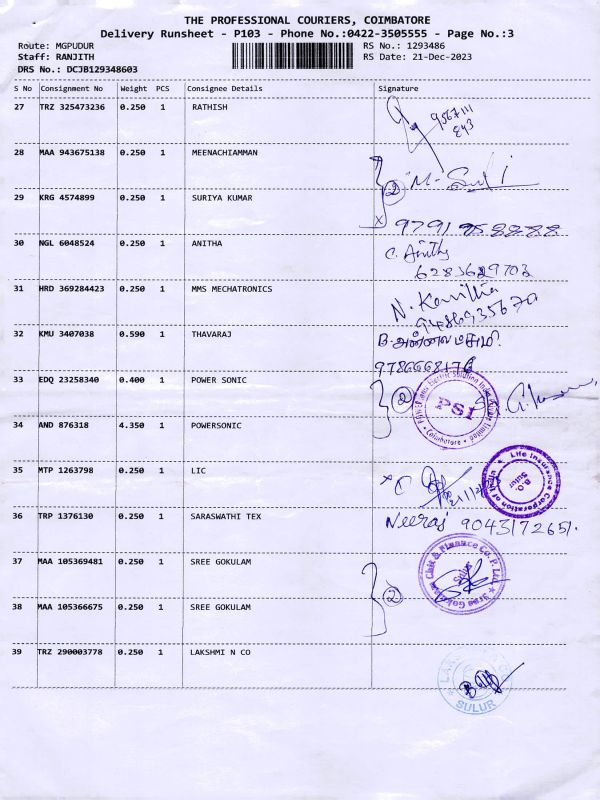 THE PROFESSIONAL COURIERS, COIMBATORE
Delivery Runsheet - P103 - Phone No.:0422-3505555 - Page No.:3
Route: MGPUDUR RS No.: 1293486
Staff: RANJITH RS Date: 21-Dec-2023
DRS No.: DCJB129348603
S No Consignment No Weight PCS Consignee Details Signature
27 TRZ 325473236 0.250 1 RATHISH
28 MAA 943675138 0.250 1 MEENACHIAMMAN
2
29 KRG 4574899 0.250 1 SURIYA KUMAR
30 NGL 6048524 0.250 1 ANITHA C. Anitha
6283629703
31 HRD 369284423 0.250 1 MMS MECHATRONICS
9486935670
32 KMU 3407038 0.590 1 THAVARAJ
33 EDQ 23258340 0.400 1 POWER SONIC
2 PSI
34 AND 876318 4.350 1 POWERSONIC
35 MTP 1263798 0.250 1 LIC
Life Insurance Corporation of India
B.O. Sulur
36 TRP 1376130 0.250 1 SARASWATHI TEX Neeraj 9043172651.
37 MAA 105369481 0.250 1 SREE GOKULAM
Sree Gokulam Chit & Finance Co. P. Ltd.
Sulur
2
38 MAA 105366675 0.250 1 SREE GOKULAM
39 TRZ 290003778 0.250 1 LAKSHMI N CO
SULUR